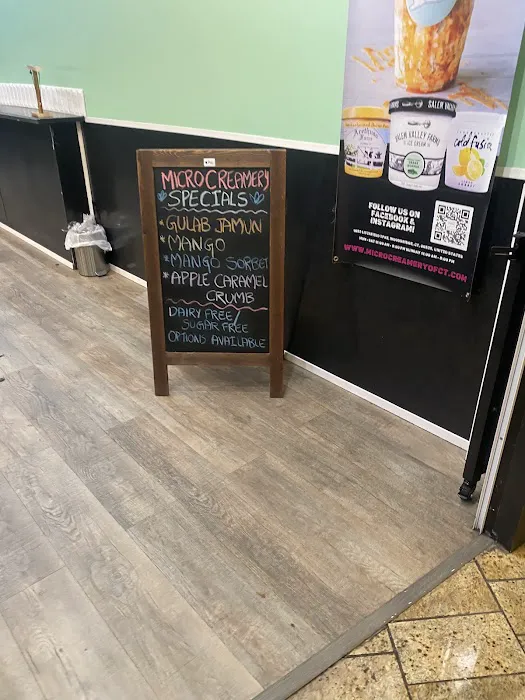 MICRO CREAMERY
SPECIALS
* GULAB JAMUN
* MANGO
* MANGO SORBET
* APPLE CARAMEL
CRUMB
DAIRY FREE/
SUGAR FREE
OPTIONS AVAILABLE
SALEM VALLEY
SALEM VALLEY FARMS
ICE CREAM
FOLLOW US ON
FACEBOOK &
INSTAGRAM!
WWW.MICROCREAMERYOFCT.COM